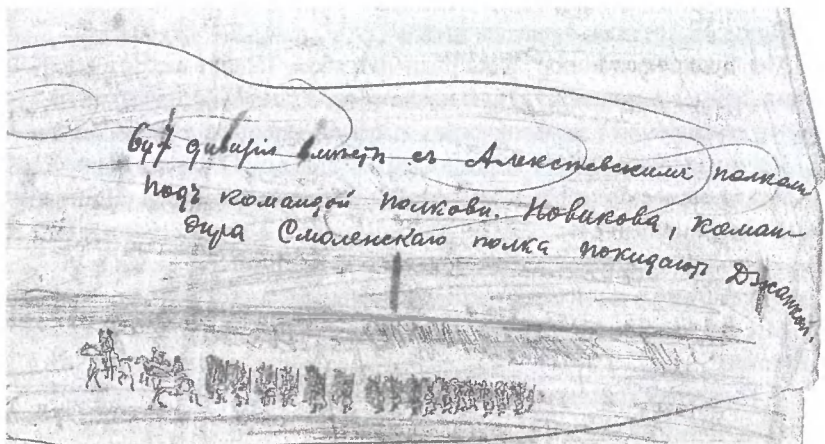 6 и 7 дивизiя вмѣстѣ съ Алексѣевскимъ полкомъ
подъ командой полковн. Новикова, коман-
дира Смоленскаго полка покидаютъ Джанкой.